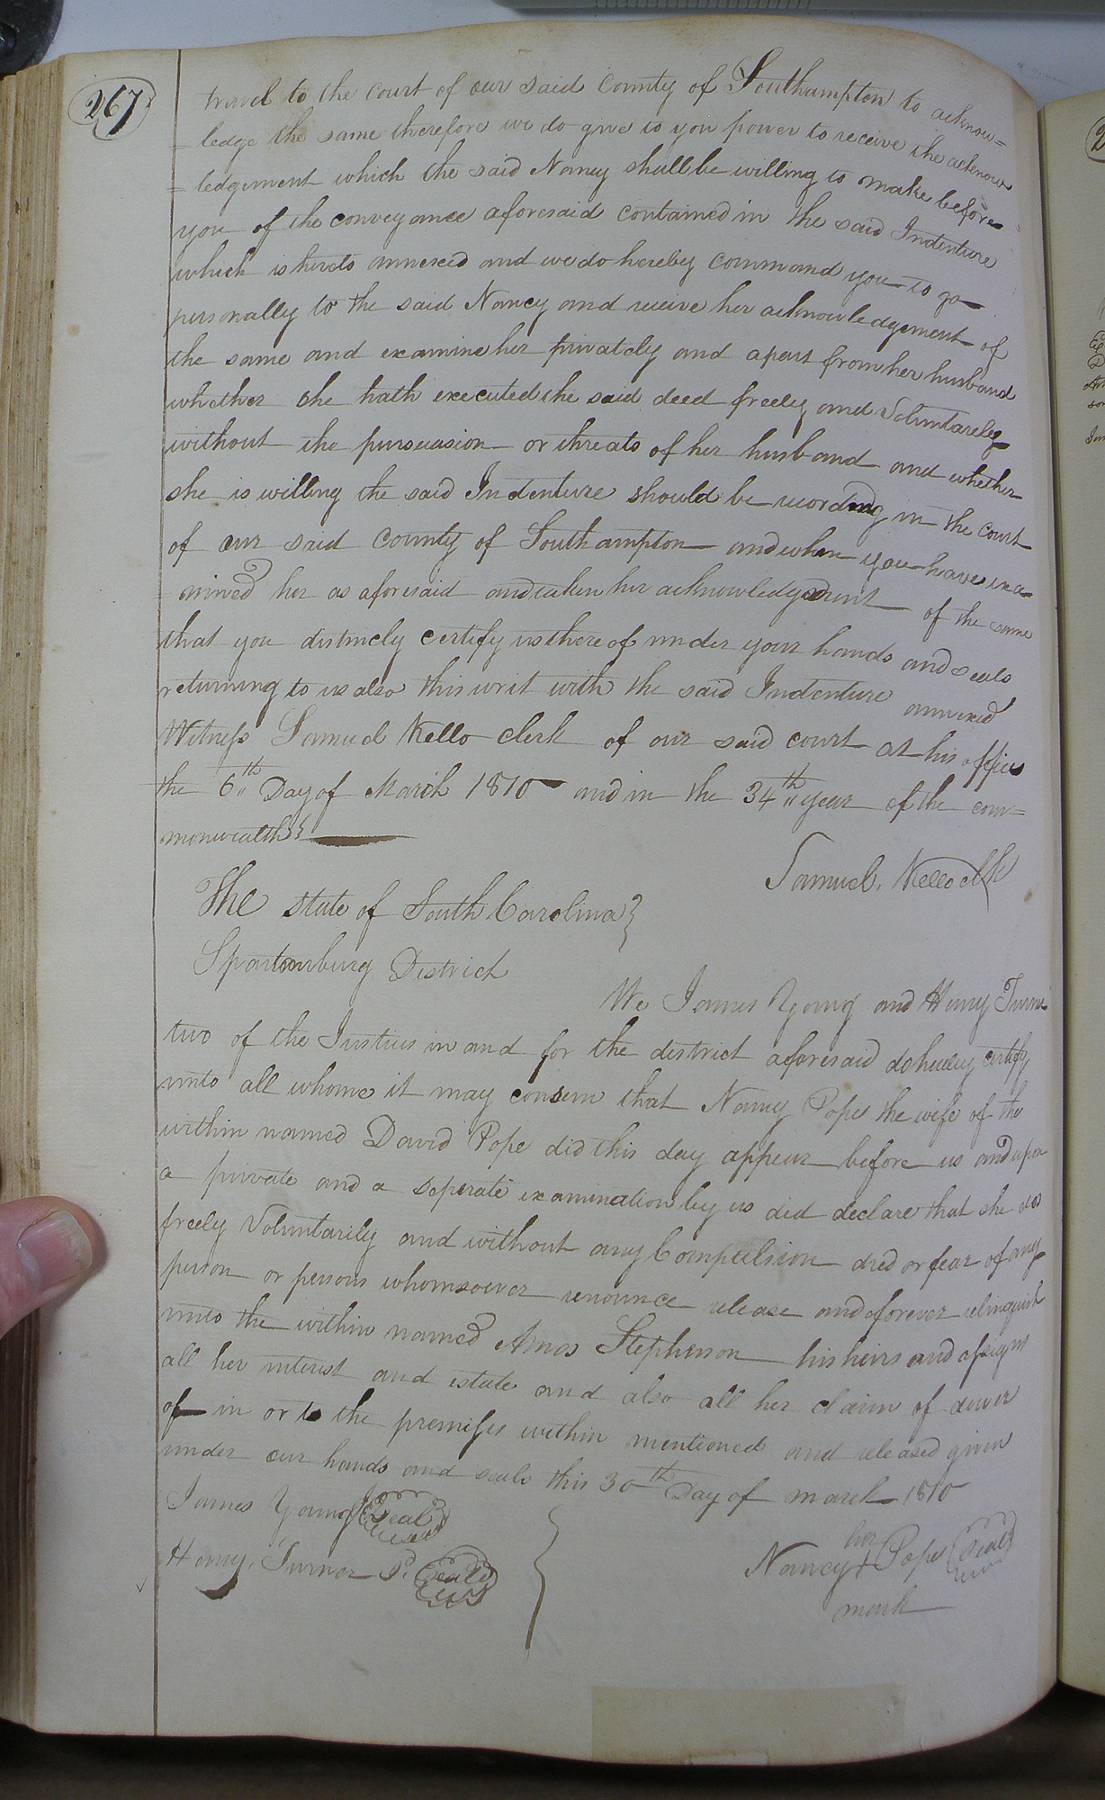 267
travel to the court of our said County of Southampton to acknow=
=ledge the same therefore we do give to you power to receive the acknow
=ledgement which the said Nancy shall be willing to make before
you of the conveyance aforesaid contained in the said Indenture
which is hereto annexed and we do hereby command you to go
personally to the said Nancy and receive her acknowledgement of
the same and examine her privately and apart from her husband
whether she hath executed the said deed freely and Voluntarely
without the pursuasion or threats of her husband and whether
she is willing the said Indenture should be recording in the Court
of our said County of Southampton and when you have exa=
mined her as aforesaid and taken her acknowledgement of the same
that you distincly certify us thereof under your hands and seals
returning to us also this writ with the said Indenture annexed
Witness Samuel Kello clerk of our said court at his office
the 6th Day of March 1810 and in the 34th year of the com=
monwealth
Samuel. Kello clk
The state of South Carolina }
Spartanburg District
We James Young and Henry Turner
two of the Justices in and for the district aforesaid do hereby certify
unto all whome it may consern that Nancy Pope the wife of the
within named David Pope did this day appear before us and upon
a private and a seperate examination by us did declare that she does
freely Voluntarily and without any Compulsion dred or fear of any
person or persons whomsoever renounce release and forever relinquish
unto the within named Amos Stephenson his heirs and assigns
all her interest and estate and also all her claim of dower
of in or to the premises within mentioned and released given
under our hands and seals this 30th Day of march 1810
James Young (Seal)
her
Nancy + Pope (Seal)
Henry. Turner (Seal)
mark